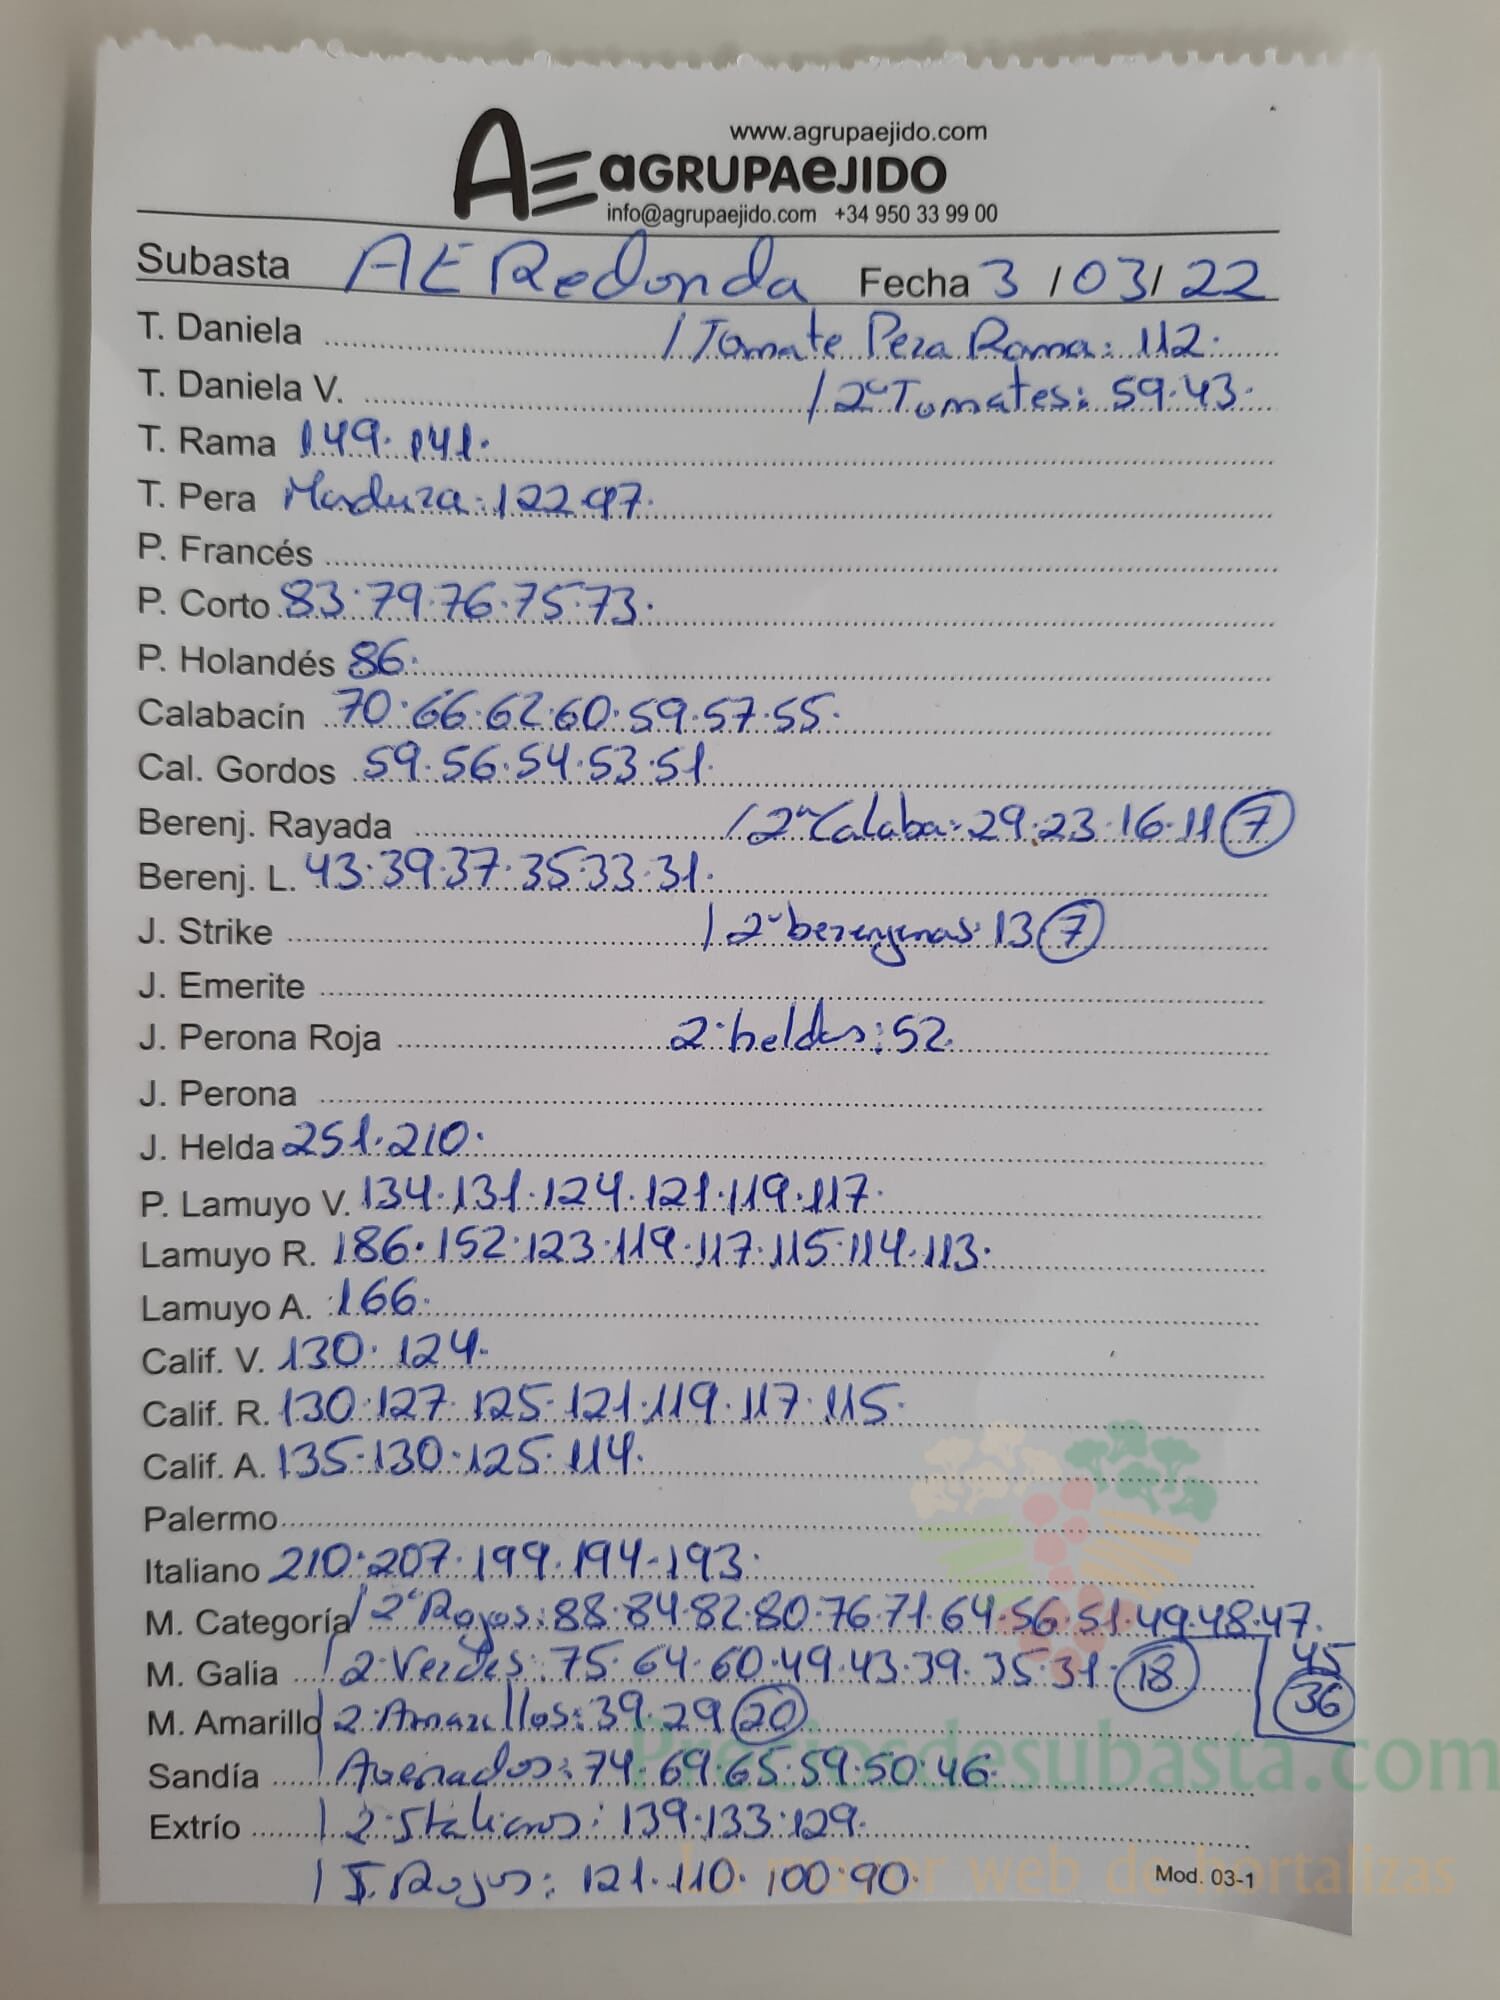 www.agrupaejido.com
AE aGRUPAeJIDO
info@agrupaejido.com +34 950 33 99 00
Subasta AE Redonda Fecha 3 / 03 / 22
T. Daniela / Tomate Pera Rama: 112.
T. Daniela V. / 2ª Tomates: 59.43.
T. Rama 149.141.
T. Pera Madura: 122.97.
P. Francés
P. Corto 83.79.76.75.73.
P. Holandés 86.
Calabacín 70.66.62.60.59.57.55.
Cal. Gordos 59.56.54.53.51.
Berenj. Rayada / 2ª Calaba: 29.23.16.11 7
Berenj. L. 43.39.37.35.33.31.
J. Strike / 2ª berenjenas: 13 7
J. Emerite
J. Perona Roja 2ª heldas: 52.
J. Perona
J. Helda 251.210.
P. Lamuyo V. 134.131.124.121.119.117.
Lamuyo R. 186.152.123.119.117.115.114.113.
Lamuyo A. 166.
Calif. V. 130.124.
Calif. R. 130.127.125.121.119.117.115.
Calif. A. 135.130.125.114.
Palermo
Italiano 210.207.199.194.193.
M. Categoría / 2ª Rojos: 88.84.82.80.76.71.64.56.51.49.48.47.
45
M. Galia / 2ª Verdes: 75.64.60.49.43.39.35.31. 18
36
M. Amarillo / 2ª Amarillos: 39.29 20
Sandía / Asurados: 74.69.65.59.50.46.
Extrío / 2ª Italianos: 139.133.129.
/ I. Rojos: 121.110.100.90.
Mod. 03-1
Preciosdesubasta.com
La mayor web de hortalizas